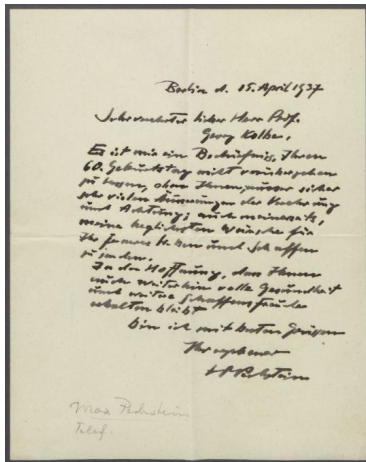 Berlin d. 15. April 1937
Sehr verehrter lieber Herr Prof.
Georg Kolbe,
Es ist mir ein Bedürfnis, Ihren
60. Geburtstag nicht vorübergehen
zu lassen, ohne Ihnen, ausser sicher
sehr vielen Äusserungen der Verehrung
und Achtung, auch meinerseits,
meine herzlichsten Wünsche für
Ihr ferneres Leben und Schaffen
zu senden.
In der Hoffnung, dass Ihnen
auch weiterhin volle Gesundheit
und weitere Schaffensfreude
erhalten bleibt
bin ich mit besten Grüssen
Ihr ergebener
HMPechstein
Max Pechstein
Telef.